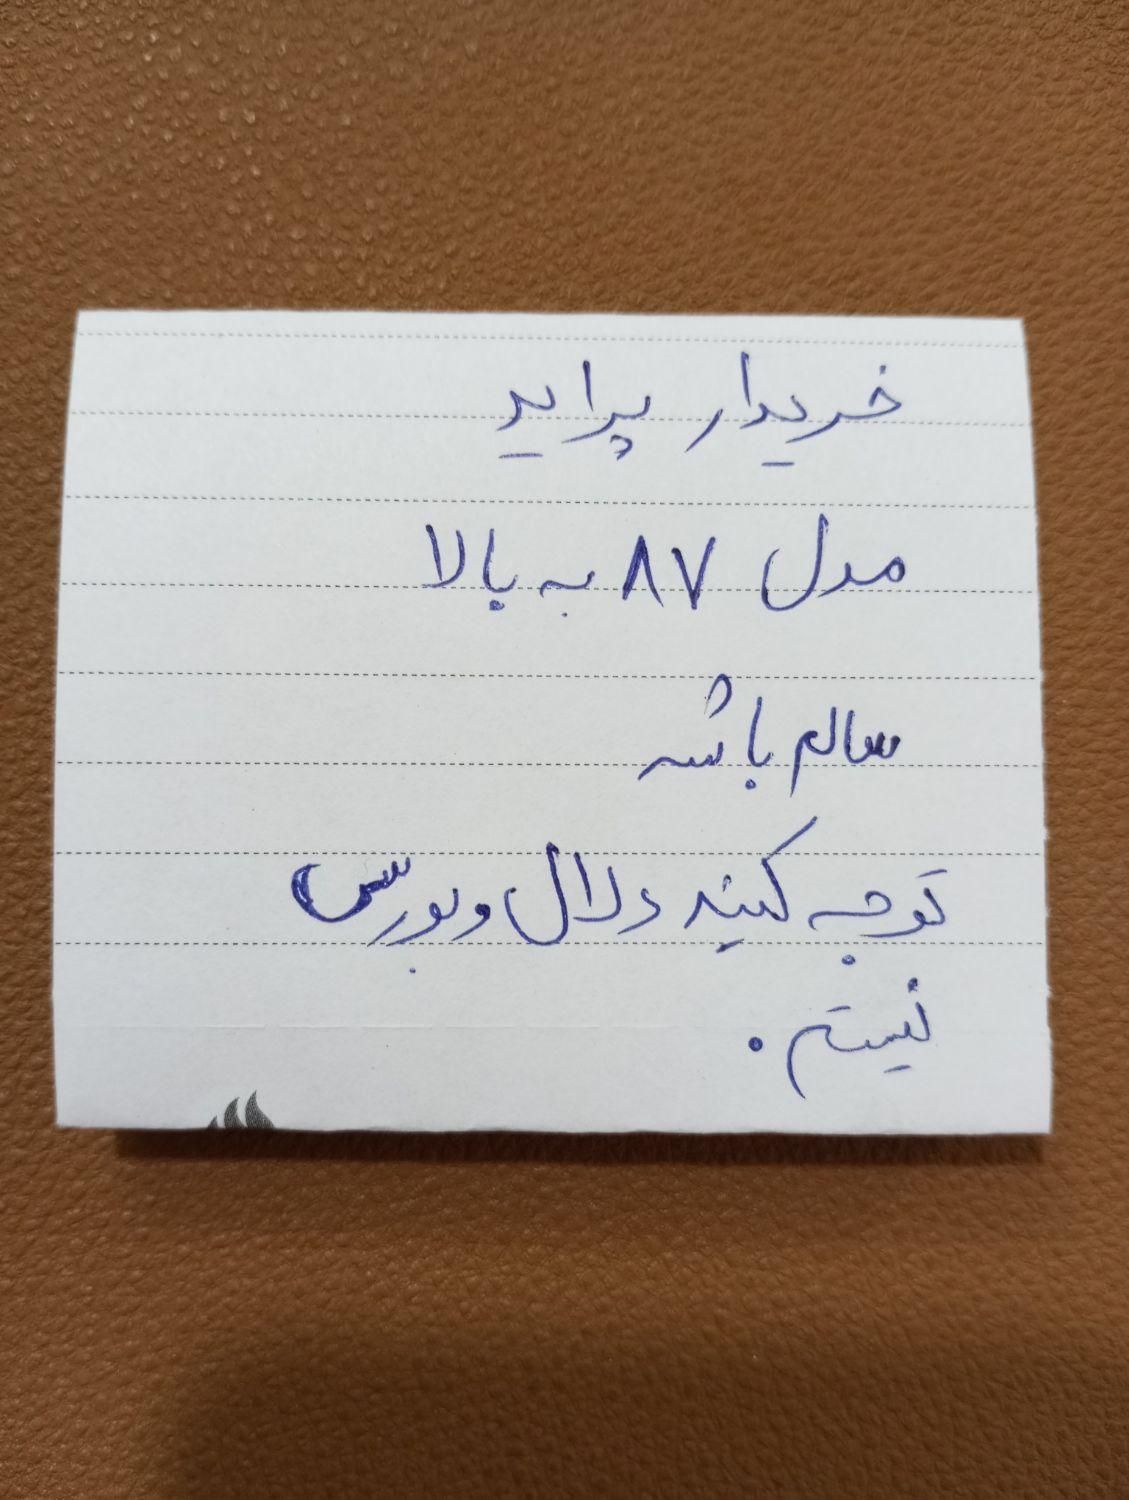 خریدار پراید
مدل ۸۷ به بالا
سالم باشه
توجه کنید دلال و بورس
نیستم.